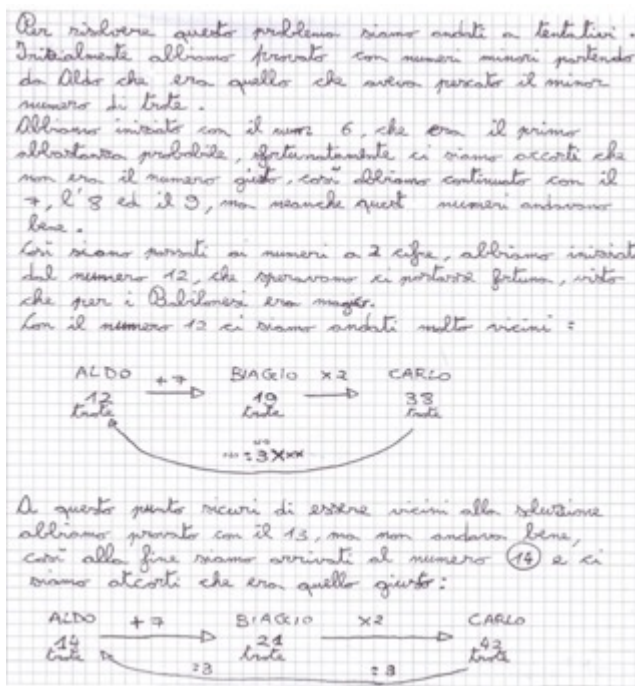 Per risolvere questo problema siamo andati a tentativi.
Inizialmente abbiamo provato con numeri minori partendo
da Aldo che era quello che aveva pescato il minor
numero di trote.
Abbiamo iniziato con il num 6, che era il primo
abbastanza probabile, sfortunatamente ci siamo accorti che
non era il numero giusto, così abbiamo continuato con il
7, l'8 ed il 9, ma neanche quest numeri andavano
bene.
Così siamo passati ai numeri a 2 cifre, abbiamo iniziat
dal numero 12, che speravamo ci portasse fortuna, visto
che per i Babilonesi era magico.
Con il numero 12 ci siamo andati molto vicini :
ALDO +7 BIAGIO x2 CARLO
12 19 38
trote trote trote
NO :3
A questo punto sicuri di essere vicini alla soluzione
abbiamo provato con il 13, ma non andava bene,
così alla fine siamo arrivati al numero 14 e ci
siamo accorti che era quello giusto:
ALDO +7 BIAGIO x2 CARLO
14 21 42
trote trote trote
:3 :3